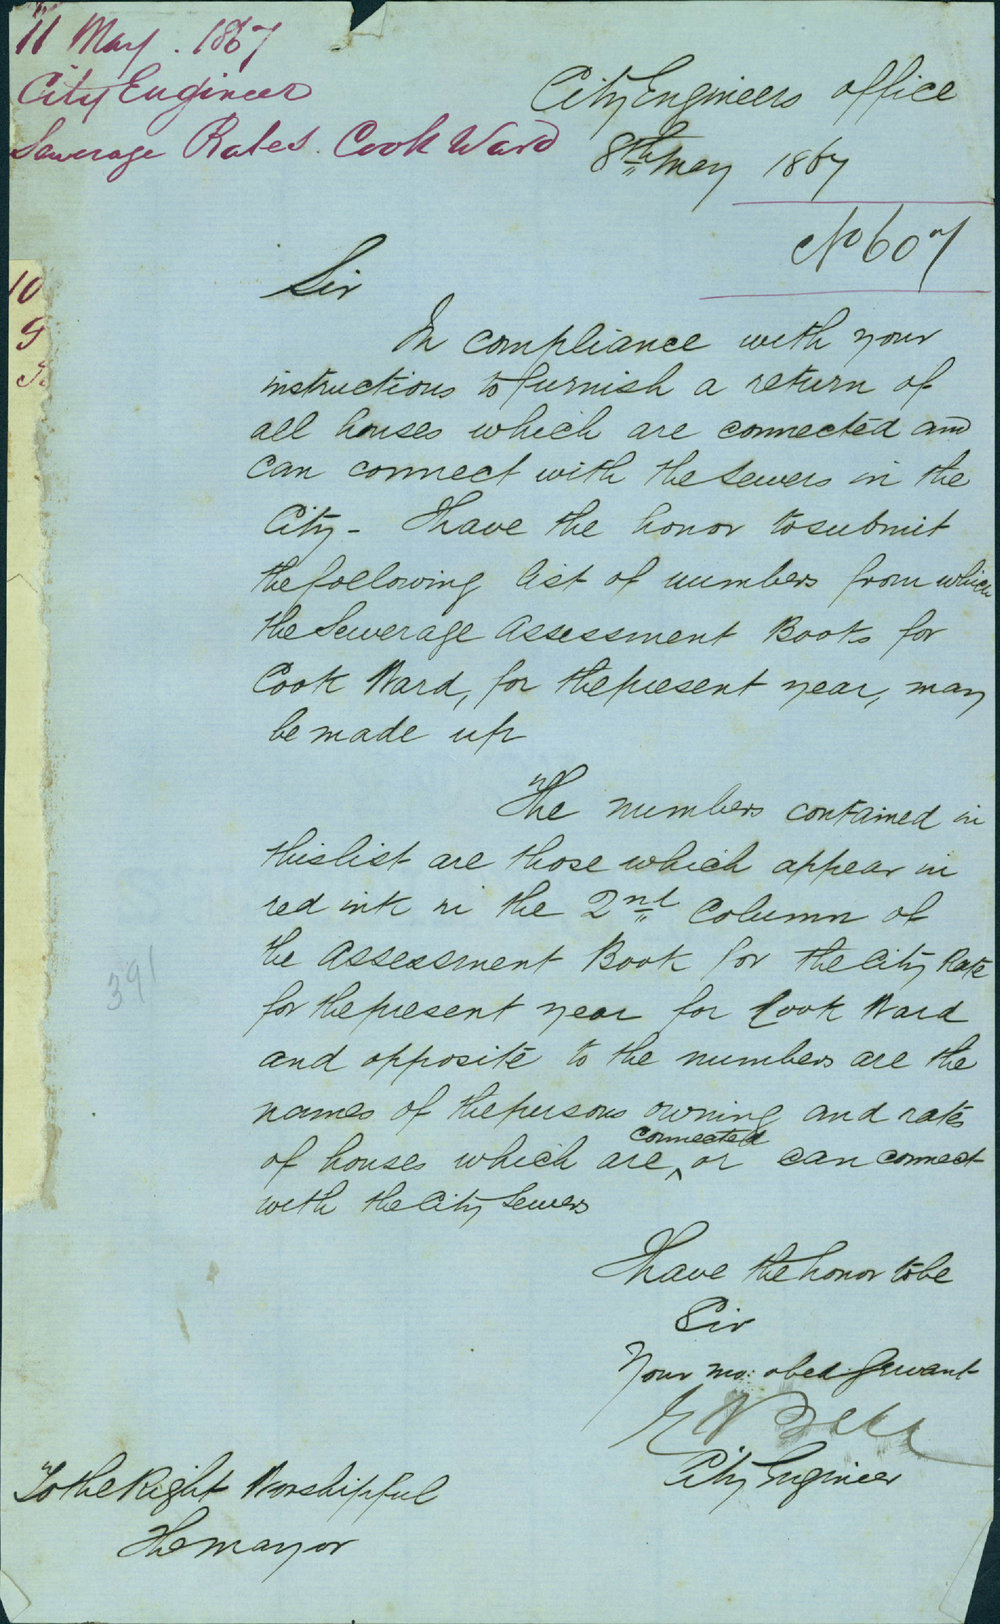 11 May. 1867
City Engineer
Sewerage Rates. Cook Ward
City Engineers office
8th May 1867
No 607
10
9
Sir
In compliance with your
instructions to furnish a return of
all houses which are connected and
can connect with the sewers in the
City - I have the honor to submit
the following list of numbers from which
the Sewerage Assessment Books for
Cook Ward, for the present year, may
be made up
The numbers contained in
this list are those which appear in
red ink in the 2nd Column of
the Assessment Book for the City Rate
for the present year for Cook Ward
and opposite to the numbers are the
names of the persons owning and rate
of houses which are connected or can connect
with the City Sewers
391
I have the honor to be
Sir
Your mo: obed Servant
E Bell
City Engineer
To the Right Worshipful
The Mayor